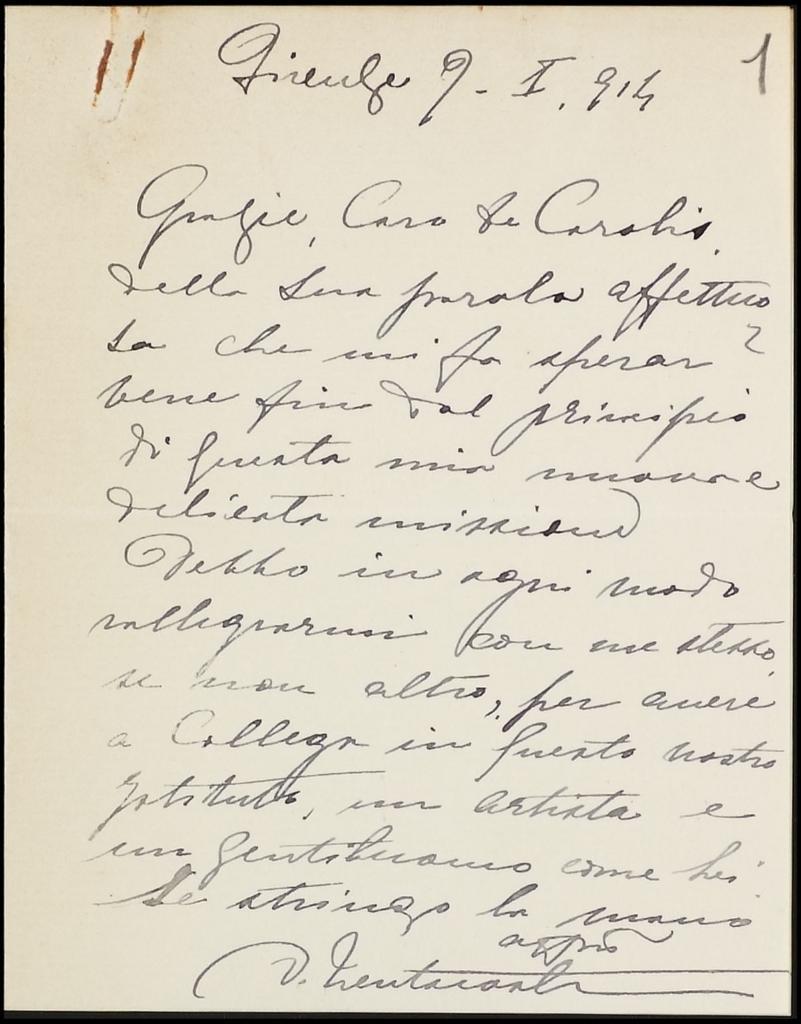 Firenze 9 - X. 914
1
Grazie, Caro De Carolis,
della Sua parola affettuo
sa che mi fa sperar
bene fin dal principio
di questa mia nuova e
delicata missione
Debbo in ogni modo
rallegrarmi con me stesso,
se non altro, per avere
a Collega in questo nostro
Istituto, un artista e
un gentiluomo come Lei
Le stringo la mano
D. Trentacoste